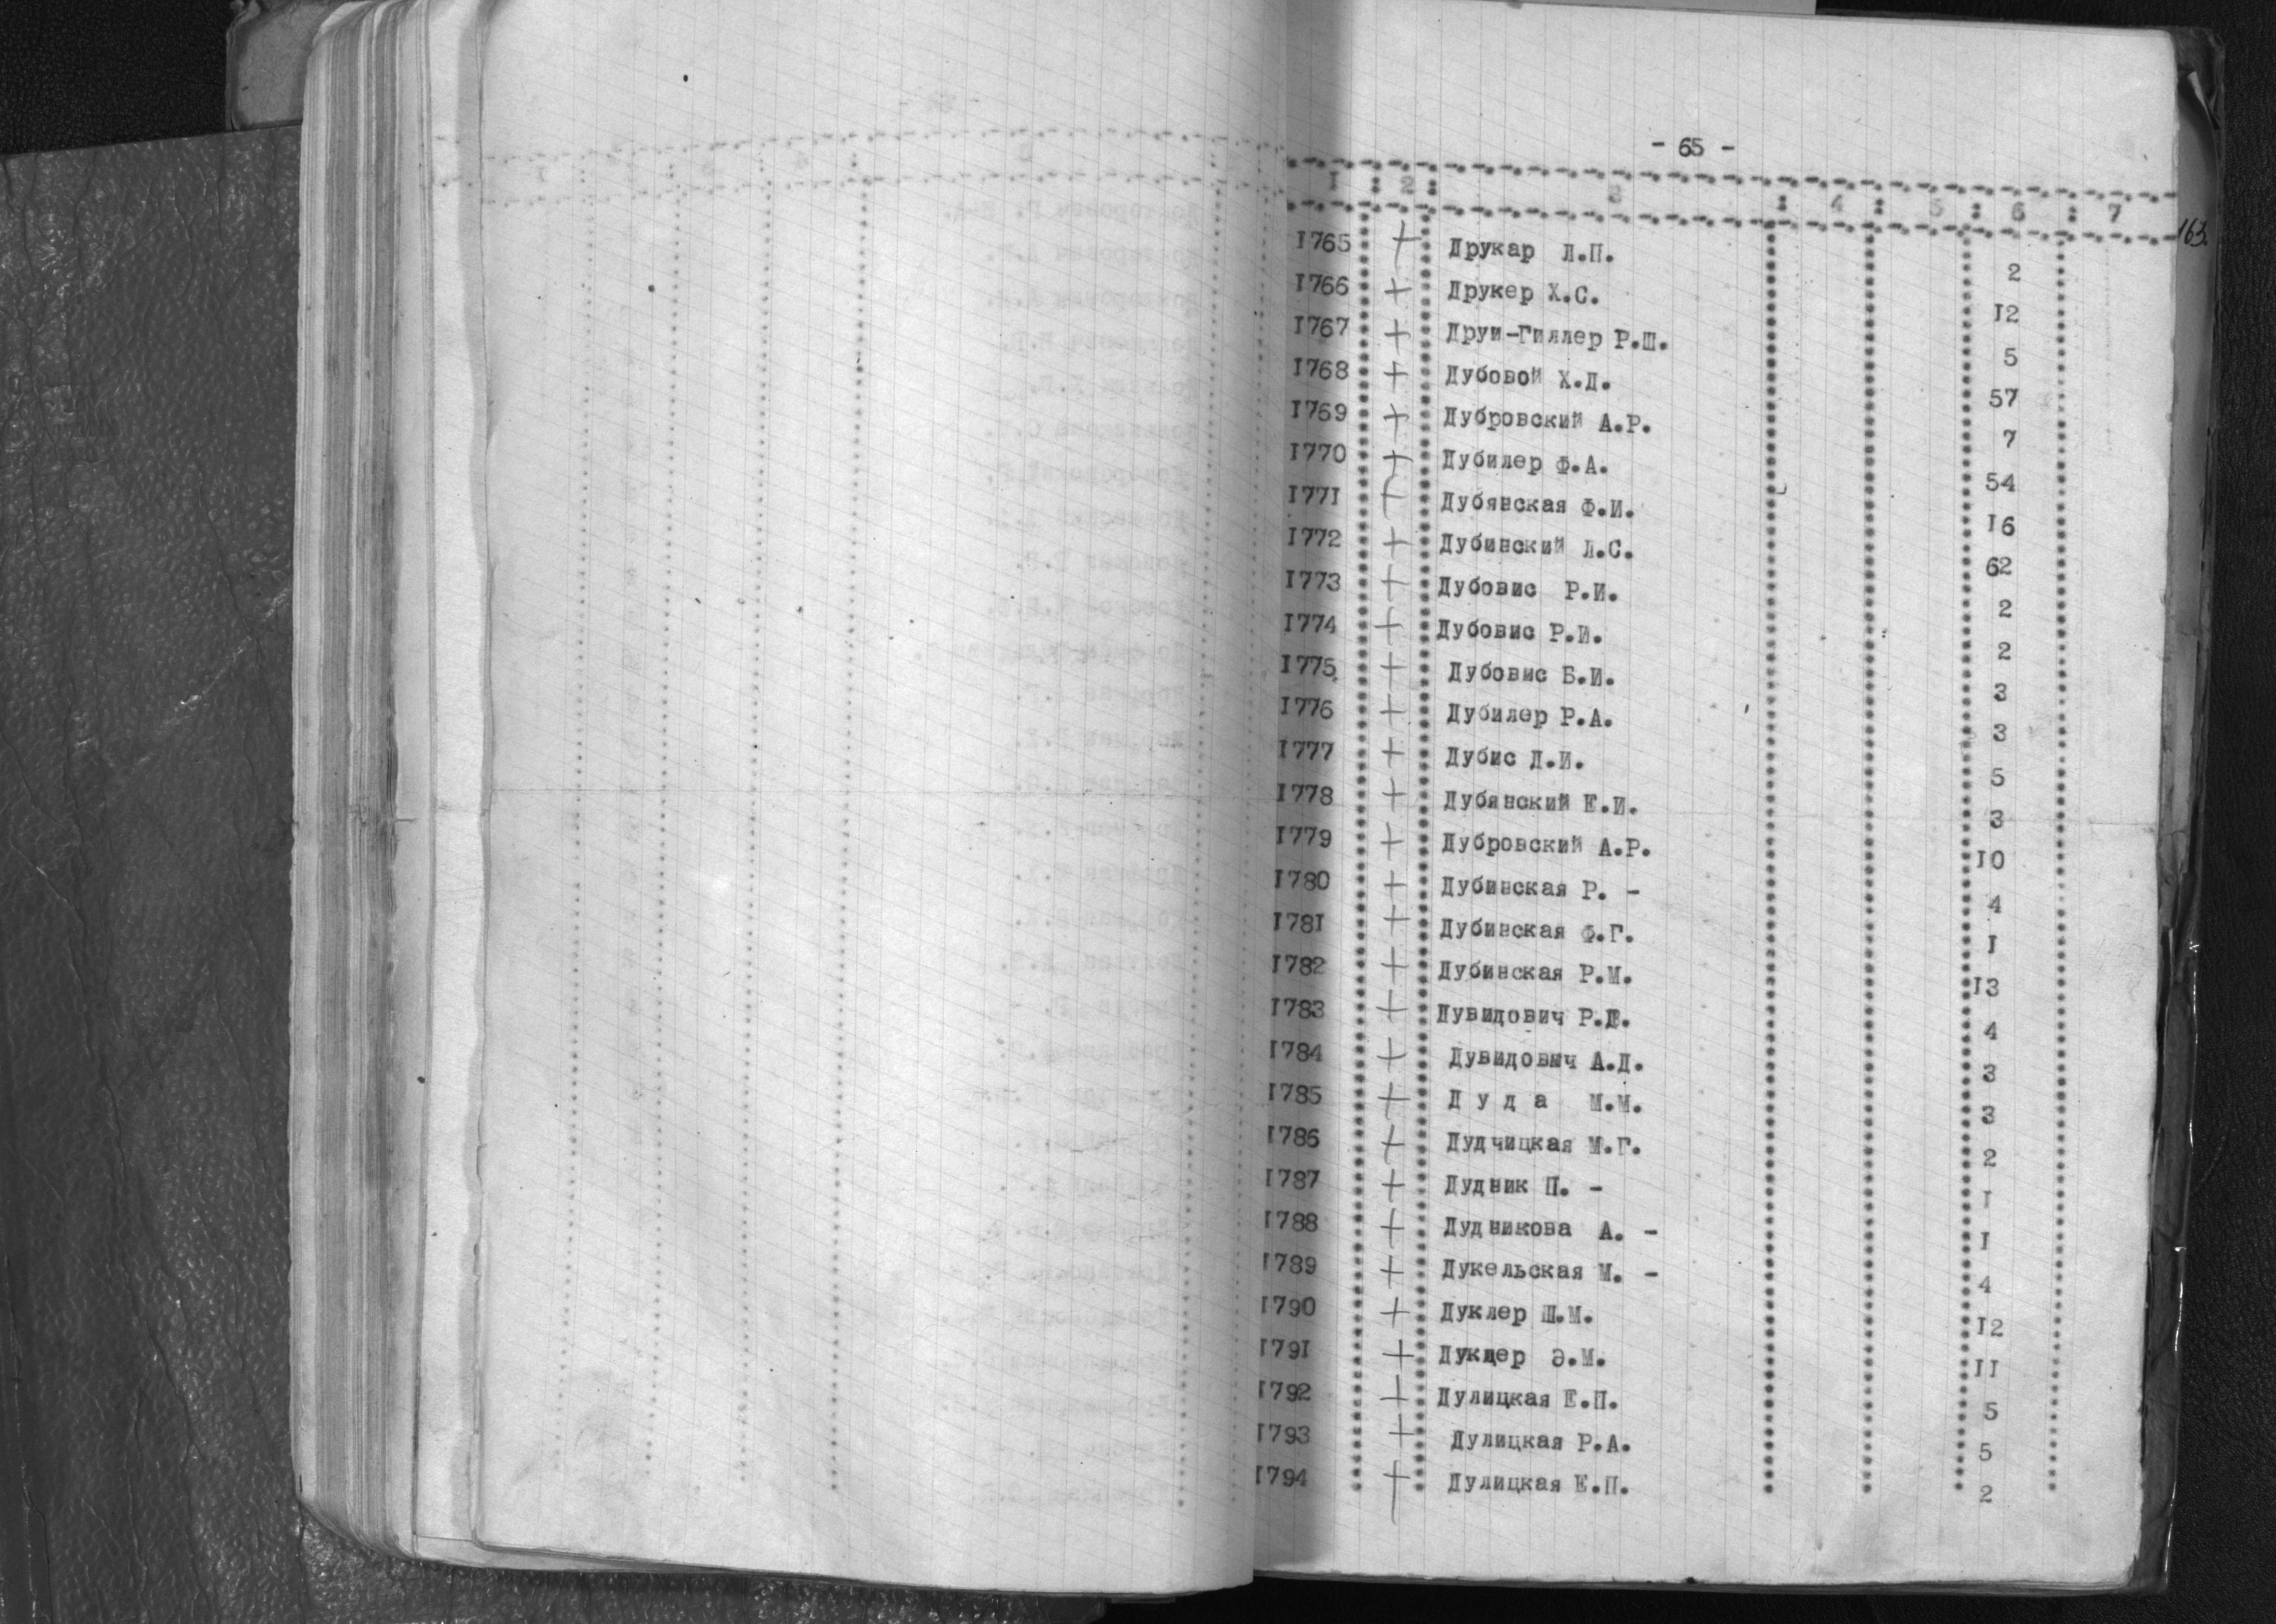 - 65 -
1 : 2 : 3 : 4 : 5 : 6 : 7
163.
1765 + Друкар Л.П. 2
1766 + Друкер Х.С. 12
1767 + Друи-Гиллер Р.Ш. 5
1768 + Дубовой Х.Д. 57
1769 + Дубровский А.Р. 7
1770 + Дубилер Ф.А. 54
1771 + Дубянская Ф.И. 16
1772 + Дубинский Л.С. 62
1773 + Дубовис Р.И. 2
1774 + Дубовис Р.И. 2
1775 + Дубовис Б.И. 3
1776 + Дубилер Р.А. 3
1777 + Дубис Д.И. 5
1778 + Дубянский Е.И. 3
1779 + Дубровский А.Р. 10
1780 + Дубинская Р. - 4
1781 + Дубинская Ф.Г. 1
1782 + Дубинская Р.М. 13
1783 + Дувидович Р.Д. 4
1784 + Дувидович А.Д. 3
1785 + Д у д а М.М. 3
1786 + Дудчицкая М.Г. 2
1787 + Дудник П. - 1
1788 + Дудникова А. - 1
1789 + Дукельская М. - 4
1790 + Дуклер Ш.М. 12
1791 + Дуклер Э.М. 11
1792 + Дулицкая Е.П. 5
1793 + Дулицкая Р.А. 5
1794 + Дулицкая Е.П. 2